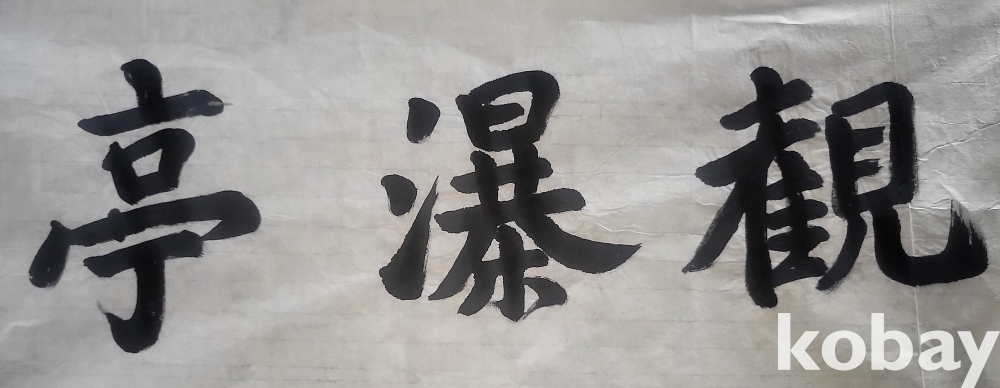 観瀑亭
kobay